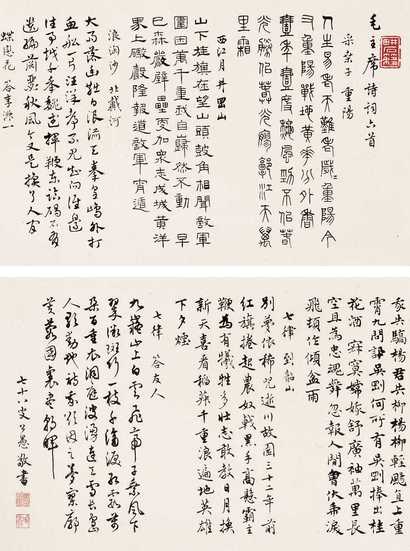 毛主席詩詞六首
采桑子 重陽
人生易老天難老歲歲重陽今
又重陽戰地黃花分外香 一
年一度秋風勁不似春
光勝似春光寥廓江天萬
里霜
西江月 井岡山
山下旌旗在望山頭鼓角相聞敵軍
圍困萬千重我自巋然不動 早
已森嚴壁壘更加眾志成城黃洋
界上礮聲隆報道敵軍宵遁
浪淘沙 北戴河
大雨落幽燕白浪滔天秦皇島外打
魚船一片汪洋都不見知向誰邊
往事越千年魏武揮鞭東臨碣石有
遺篇蕭瑟秋風今又是換了人間
蝶戀花 答李淑一
我失驕楊君失柳楊柳輕颺直上重
霄九問訊吳剛何所有吳剛捧出桂
花酒 寂寞嫦娥舒廣袖萬里長
空且為忠魂舞忽報人間曾伏虎淚
飛頓作傾盆雨
七律 到韶山
別夢依稀咒逝川故園三十二年前
紅旗捲起農奴戟黑手高懸霸主
鞭為有犧牲多壯志敢教日月換
新天喜看稻菽千重浪遍地英雄
下夕煙
七律 答友人
九嶷山上白雲飛帝子乘風下
翠微斑竹一枝千滴淚紅霞萬
朵百重衣洞庭波湧連天雪長島
人歌動地詩我欲因之夢寥廓
芙蓉國裏盡朝暉
七十八叟公愚敬書